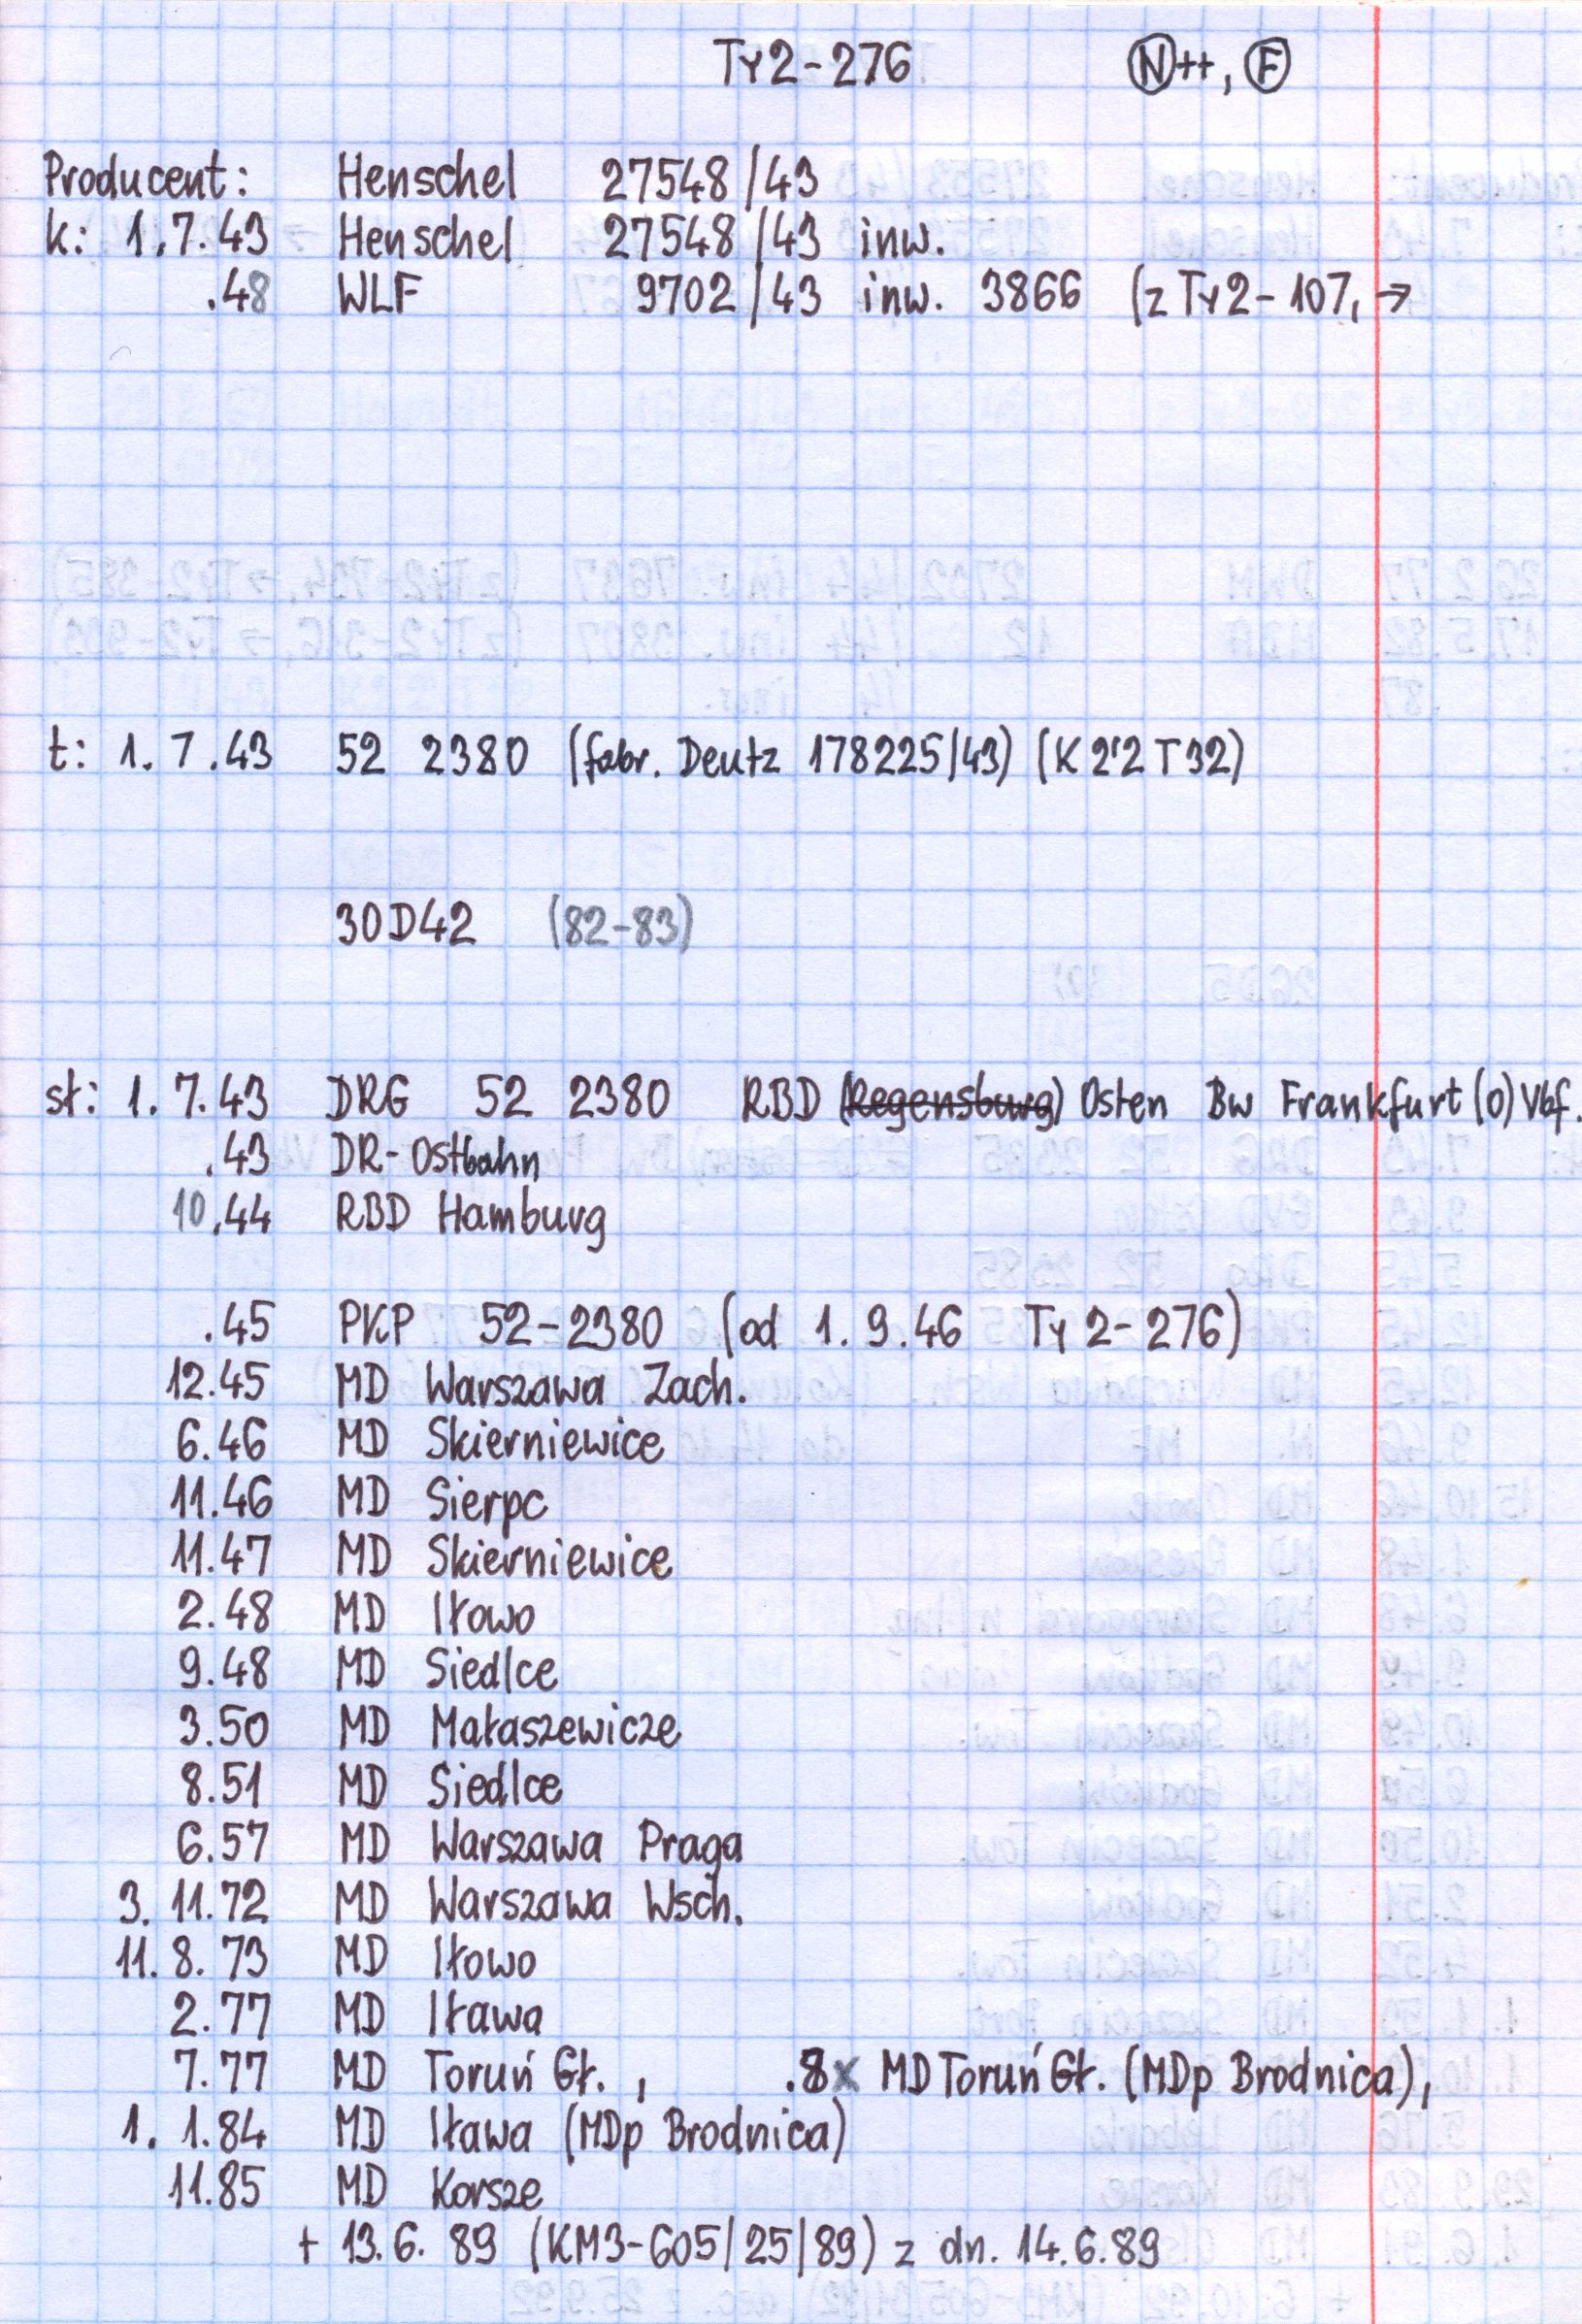 Ty2-276 Ⓝ++, Ⓕ
Producent: Henschel 27548/43
k: 1.7.43 Henschel 27548/43 inw.
.48 WLF 9702/43 inw. 3866 (z Ty2-107, →
t: 1.7.43 52 2380 (fabr. Deutz 178225/43) (K 2'2 T 32)
30D42 (82-83)
st: 1.7.43 DRG 52 2380 RBD (Regensburg) Osten Bw Frankfurt (O) Vbf.
.43 DR-Ostbahn
10.44 RBD Hamburg
.45 PKP 52-2380 (od 1.9.46 Ty2-276)
12.45 MD Warszawa Zach.
6.46 MD Skierniewice
11.46 MD Sierpc
11.47 MD Skierniewice
2.48 MD Iłowo
9.48 MD Siedlce
3.50 MD Małaszewicze
8.51 MD Siedlce
6.57 MD Warszawa Praga
3.11.72 MD Warszawa Wsch.
11.8.73 MD Iłowo
2.77 MD Iława
7.77 MD Toruń Gł. , .8x MD Toruń Gł. (MDp Brodnica),
1.1.84 MD Iława (MDp Brodnica)
11.85 MD Korsze
+ 13.6.89 (KM3-605/25/89) z dn. 14.6.89